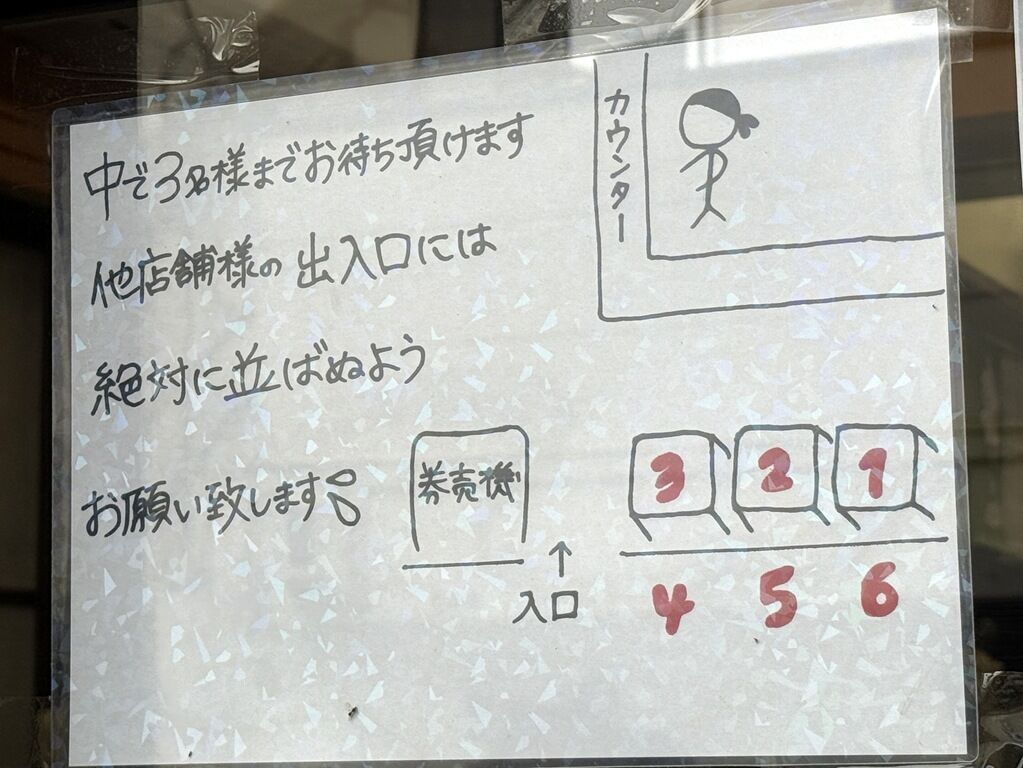 中で3名様までお待ち頂けます
他店舗様の出入口には
絶対に並ばぬよう
お願い致します
カウンター
券売機
入口
3 2 1
4 5 6